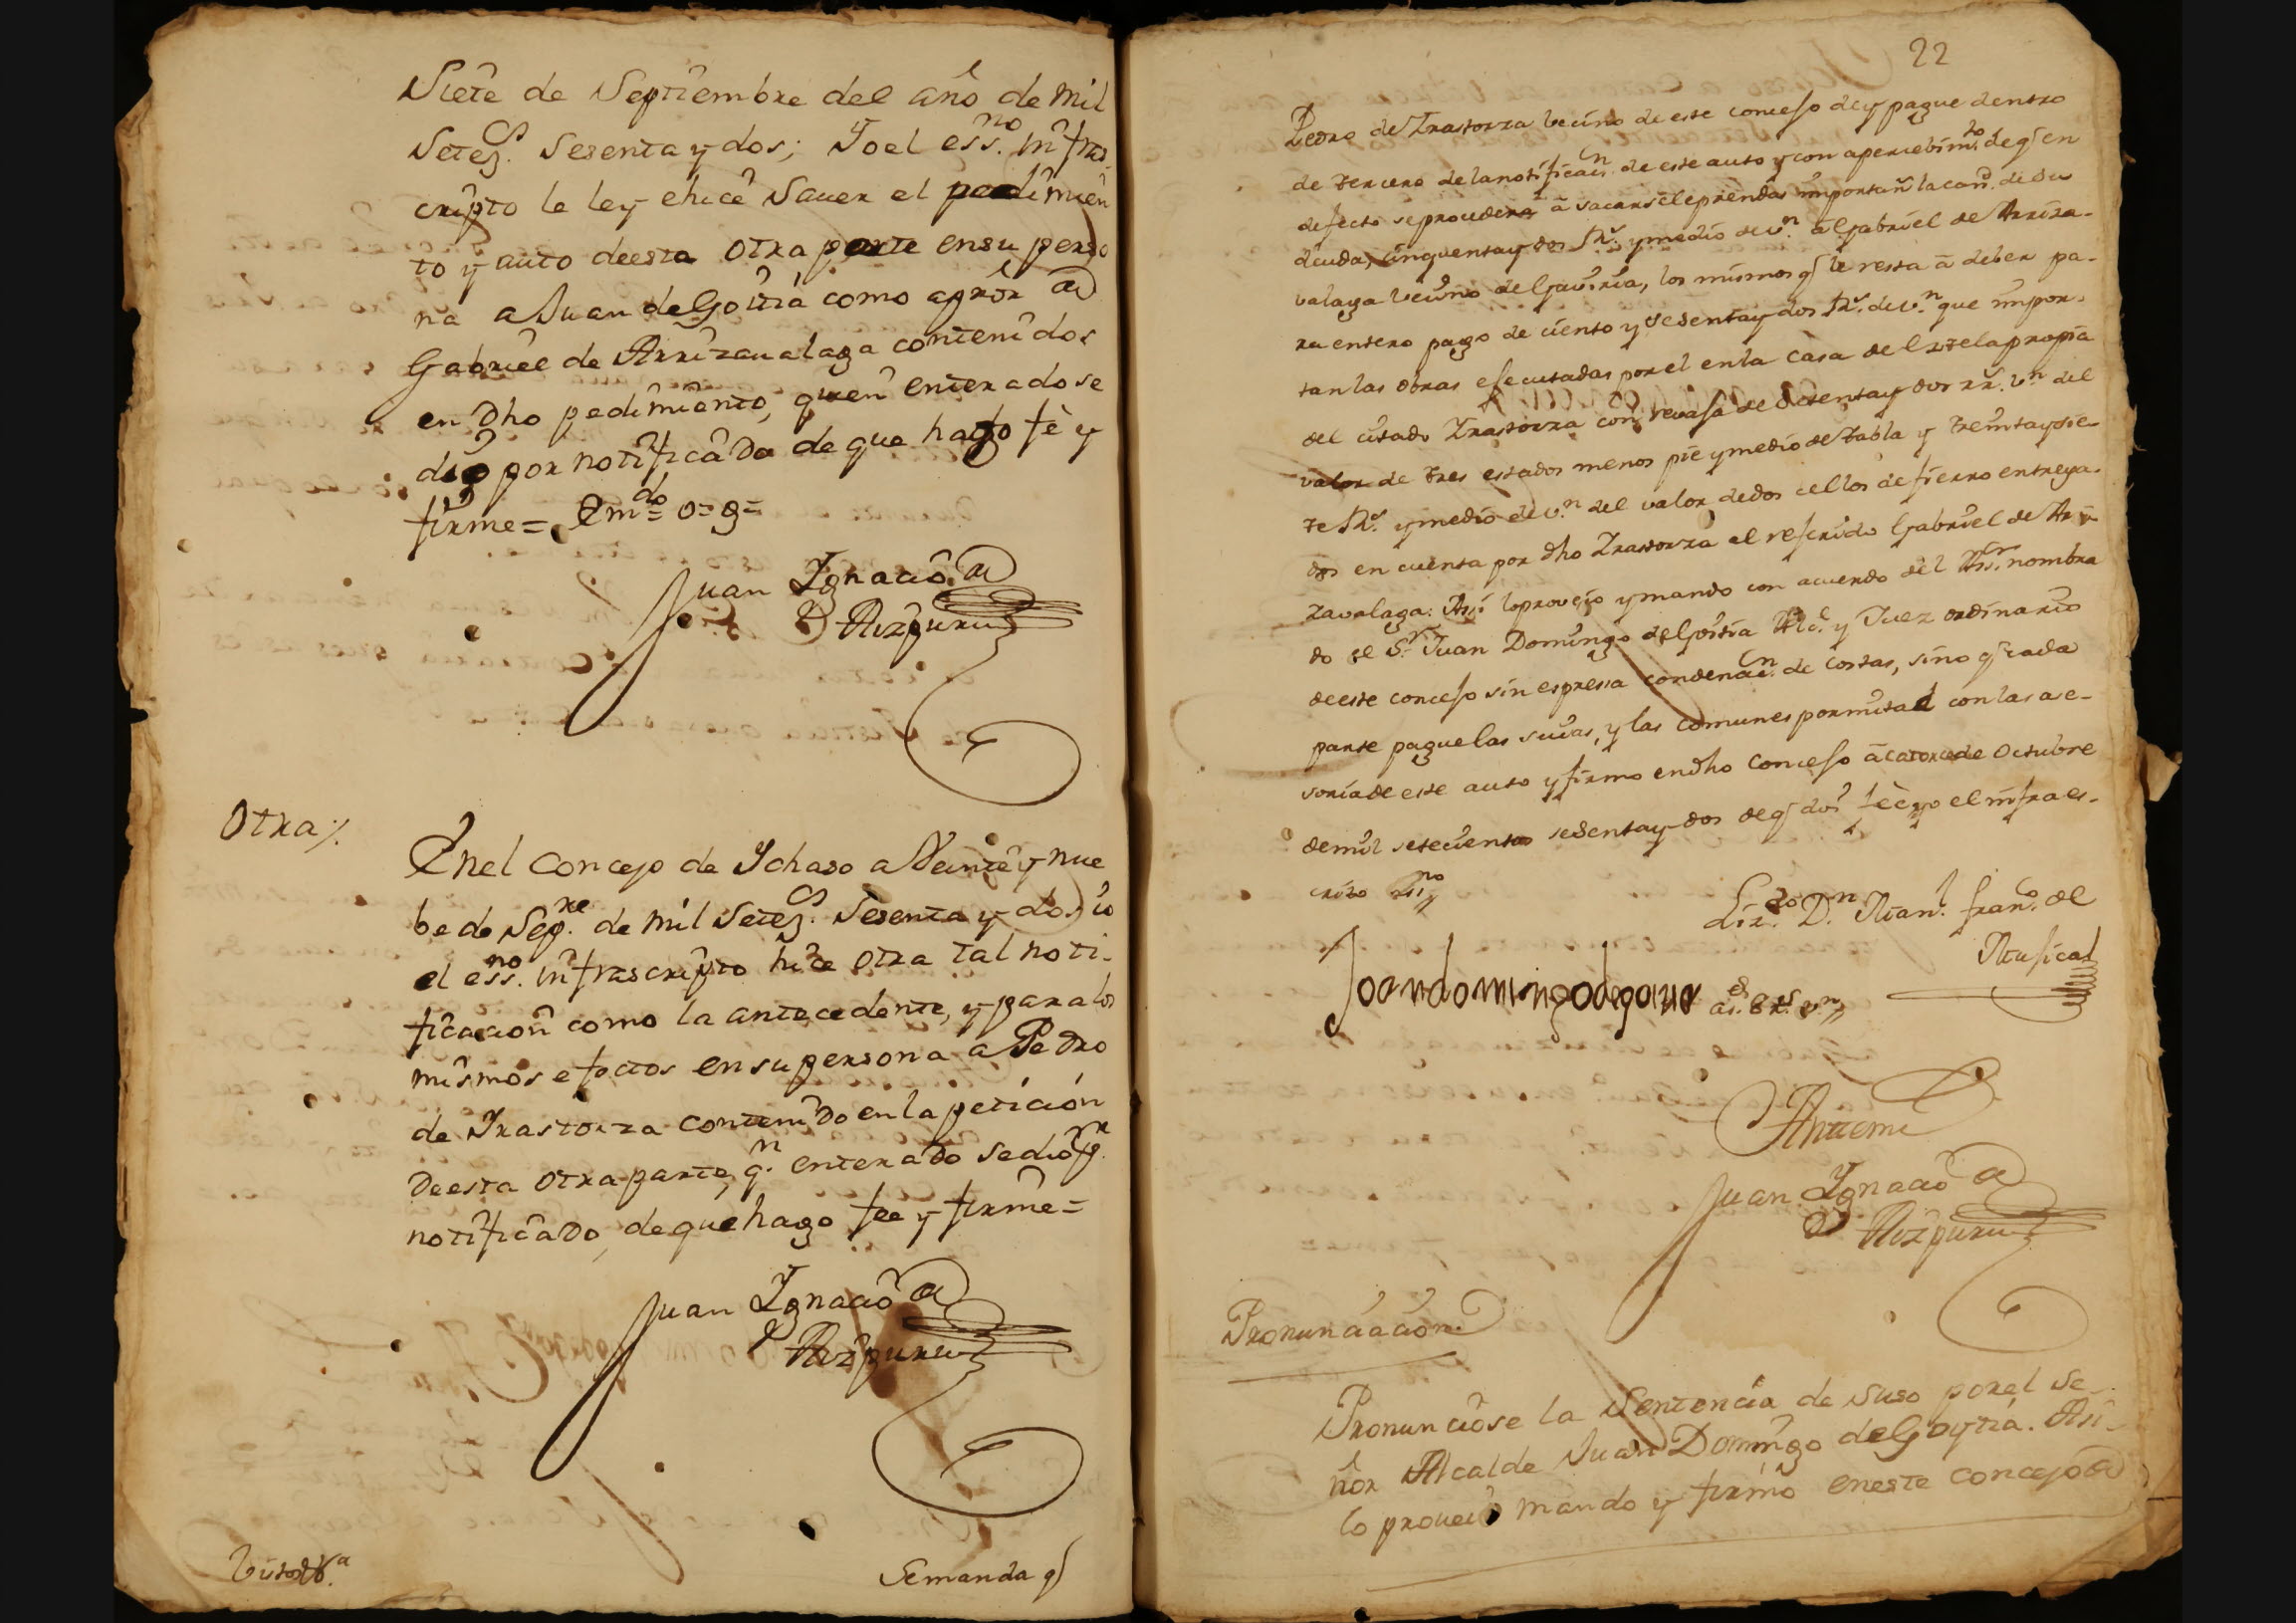 Siete de Septiembre del año de mil
Seteçs. Sesenta y dos; Yo el essno. infras-
cripto le ley e hice Sauer el pedimien
to y auto de esta otra parte en su perso
na a Juan de Goitia como apror de
Gabriel de Arrizaualaga contenidos
en dho pedimiento, quien enterado se
dio por notificado de que hago fè y
firme = Emdo = o = g =
Juan Ignacio de
Aizpuru
Otra %.
En el concejo de Ychaso a Veinte y nue
be de Sepre. de mil Seteçs. Sesenta y dos, io
el essno. infrascripto hice otra tal noti-
ficacion como la antecedente, y para los
mismos efectos en su persona a Pedro
de Yrastorza contenido en la peticion
de esta otra parte, qn. enterado se dio pr.
notificado, de que hago fee y firme =
Juan Ignacio de
Aizpuru
Se manda q
22
Pedro de Yrastorza vecino de este concejo de y pague dentro
de tercero de la notificacn. de este auto y con apercebimto. de q en
defecto se prouderà à sacarsele prendas importañ la cañ. de su
deuda, cinquenta y dos Rs. y medio de vn. à Gabriel de Arriza-
valaga vecino de Gaviria, los mismos q le resta à deber pa-
ra entero pago de ciento y sesenta y dos Rs. de vn. que impor-
tan las obras efecutadas por el en la casa de
del citado Yrastorza con revaja de setenta y dos rrs. vn. del
valor de tres estados menos pie y medio de tabla y treinta y sie-
te Rs. y medio de vn. del valor de dos cellos de fierro entrega-
dos en cuenta por dho Yrastorza al referido Gabriel de Arri-
zavalaga: Assi lo proveyo y mando con acuerdo del Assr. nombra
do el Sr. Juan Domingo de Goitia Alce. y Juez ordinario
de este concejo sin espressa condenacn. de costas, sino q cada
parte pague las suias, y las comunes por mitad con las a se-
soria de este auto y firmo en dho Concejo à catorce de Octubre
de mil setecientos sesenta y dos de q doi fèe yo el infraes-
crito essno
Lizdo. Dn. Manl. Franco. de
Musical
Joan domingo de goitia
as. 8 Rs. vn.
Ante mi
Juan Ignacio de
Aizpuru
Pronunciacion.
Pronunciose la Sentencia de Suso por el Se-
ñor Alcalde Juan Domingo de Goytia. Asi-
lo proueió mando y firmó en este concejo de